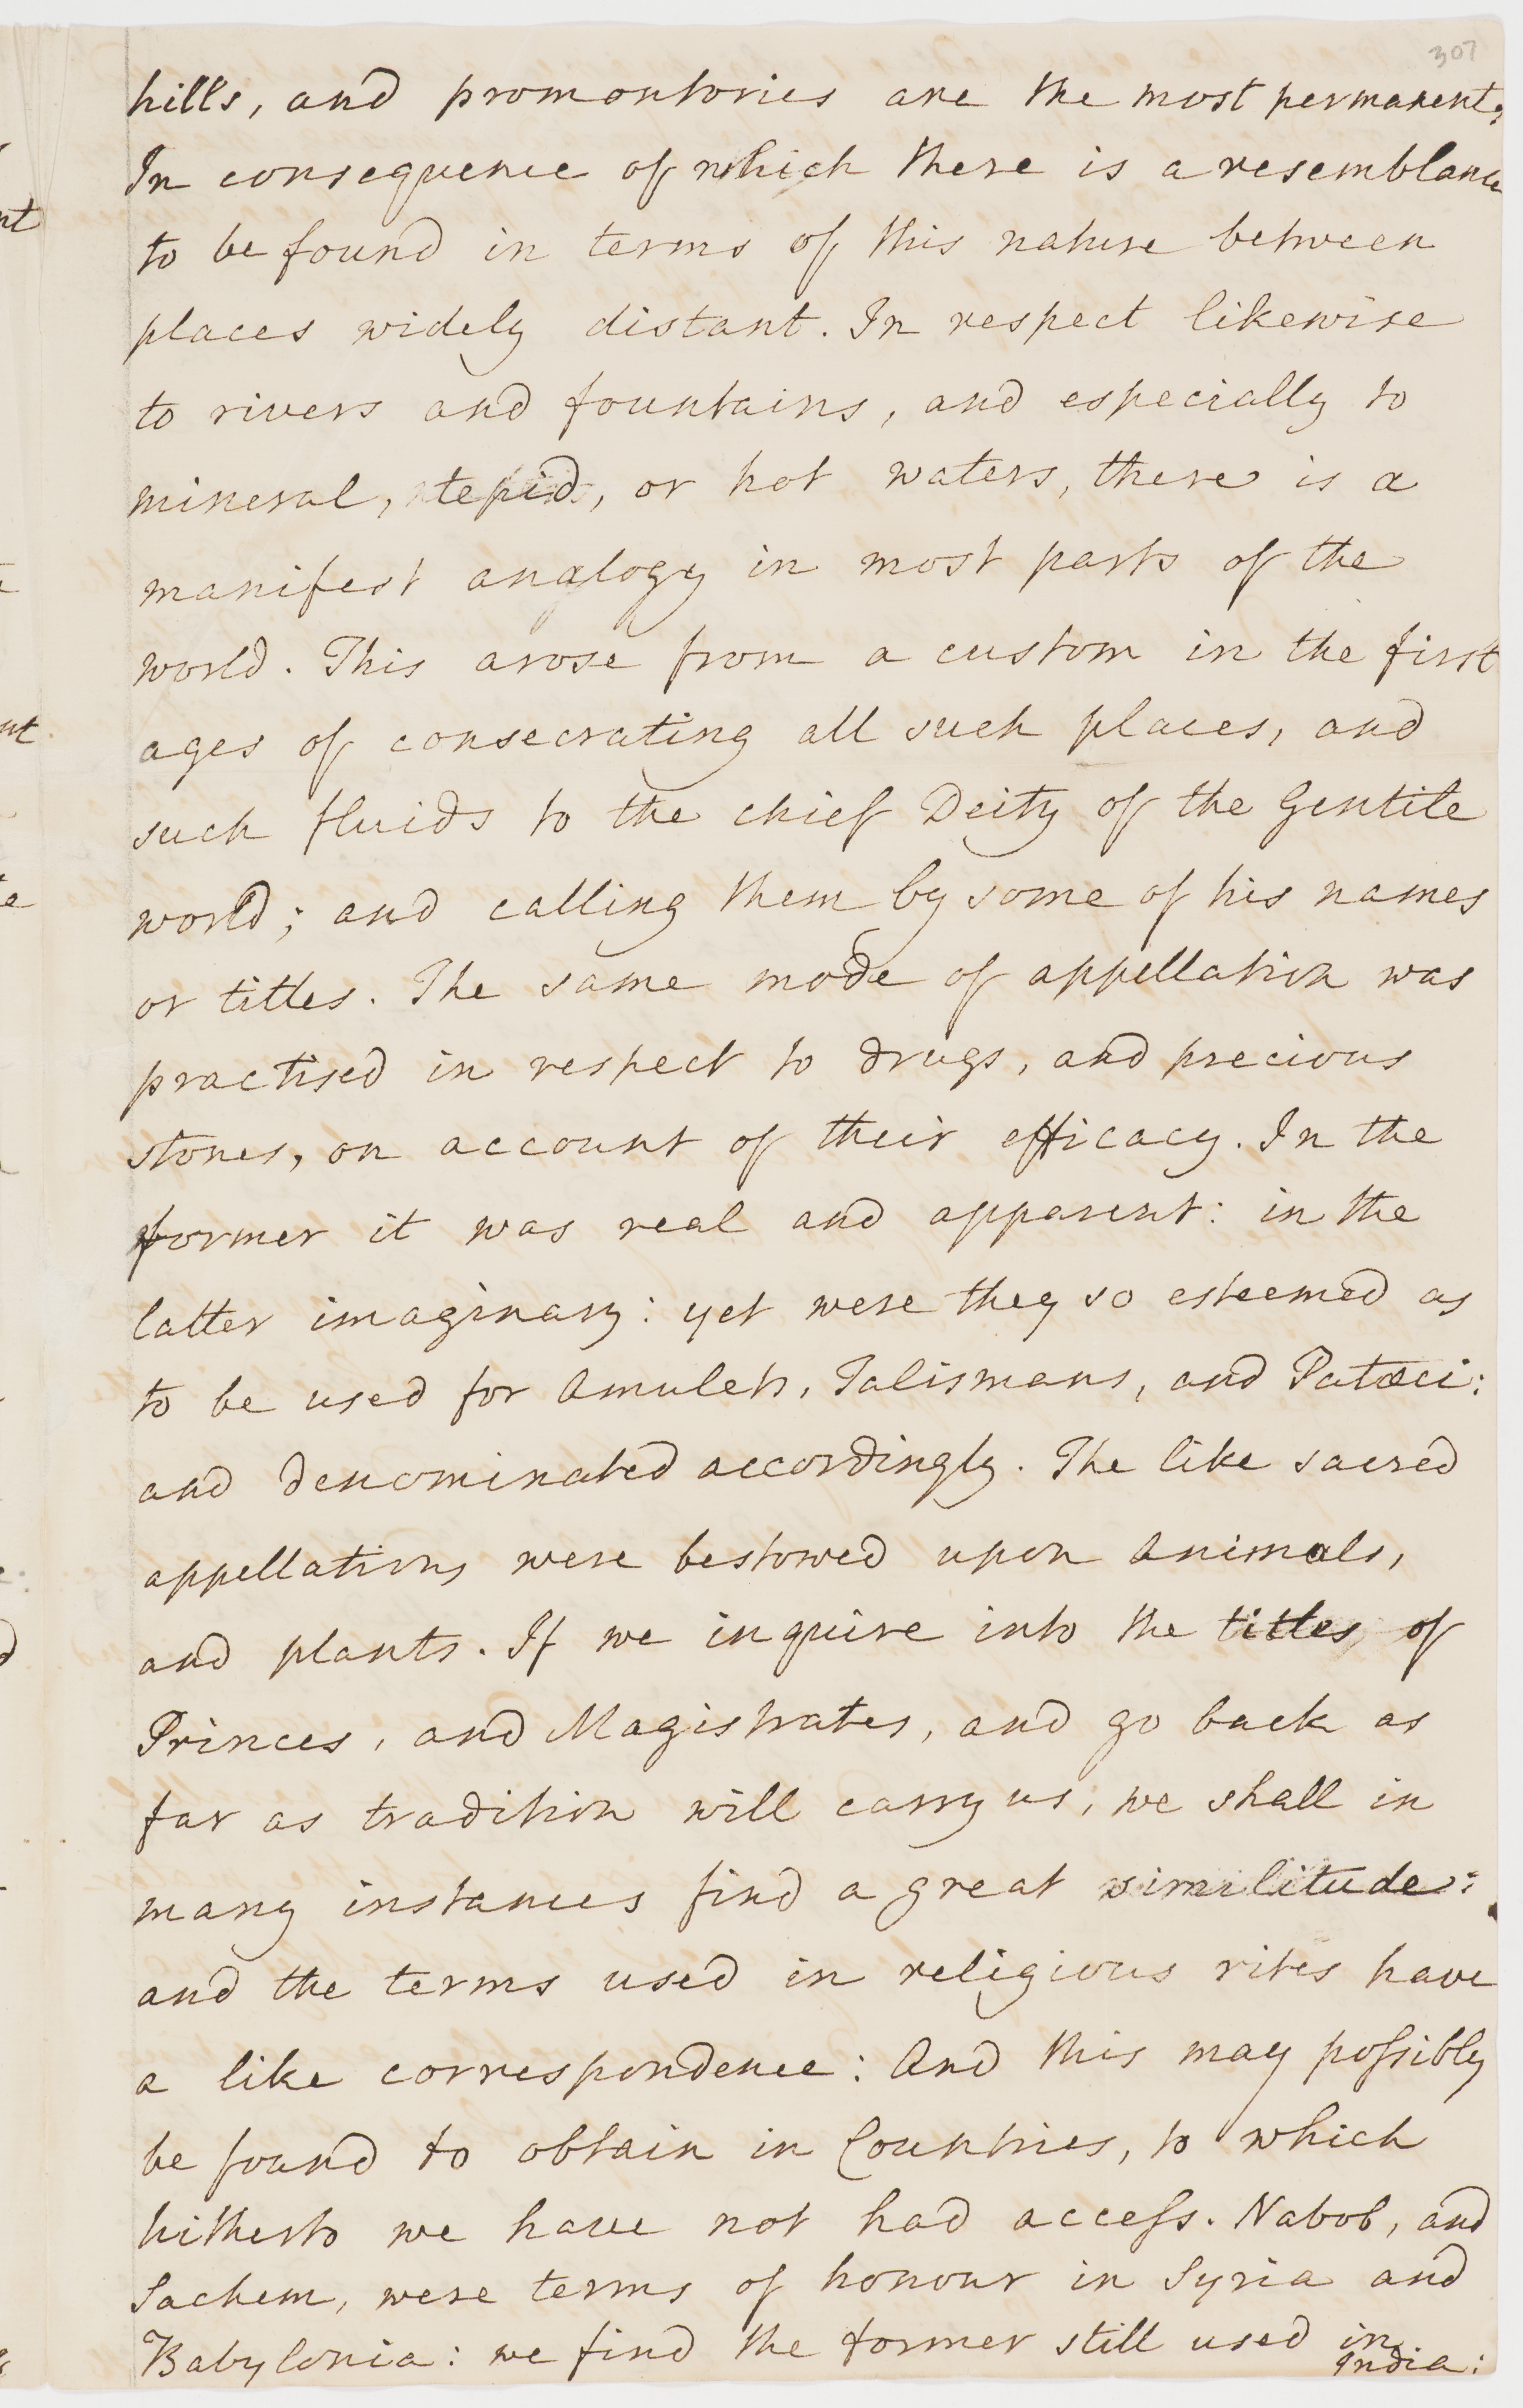 307
hills, and promontories are the most permanent.
In consequence of which there is a resemblance
to be found in terms of this nature between
places widely distant. In respect likewise
to rivers and fountains, and especially to
mineral, tepid, or hot waters, there is a
manifest analogy in most parts of the
world. This arose from a custom in the first
ages of consecrating all such places, and
such fluids to the chief Deity of the Gentile
world; and calling them by some of his names
or titles. The same mode of appellation was
practised in respect to drugs, and precious
stones, on account of their efficacy. In the
former it was real and apparent: in the
latter imaginary: yet were they so esteemed as
to be used for Amulets, Talismans, and Patæci:
and denominated accordingly. The like sacred
appellations were bestowed upon Animals,
and plants. If we inquire into the titles of
Princes, and Magistrates, and go back as
far as tradition will carry us; we shall in
many instances find a great similitude:
and the terms used in religious rites have
a like correspondence: And this may poſsibly
be found to obtain in Countries, to which
hitherto we have not had acceſs. Nabob, and
Sachem, were terms of honour in Syria and
Babylonia: we find the former still used in
India: